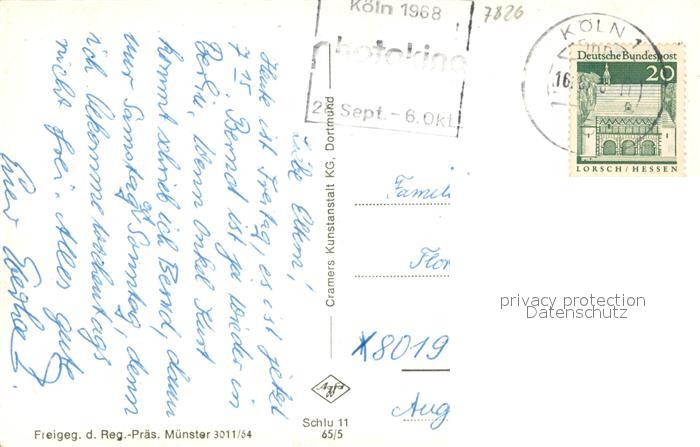 Köln 1968
photokina
28. Sept. - 6. Okt.
7826
KÖLN 1
16.
Deutsche Bundespost
20
LORSCH / HESSEN
Liebe Eltern!
Heute ist Freitag, es ist jetzt
7 15. Bernd ist ja wieder in
Berlin. Wenn Onkel Kurt
kommt schrieb ich Bernd, dann
nur Samstag Sonntag, denn
ich bekomme wochentags
nicht frei. Alles gute
Euer
Cramers Kunstanstalt KG, Dortmund
Famili
Flor
8019
Aug
privacy protection
Datenschutz
Agfa
Schlu 11
65/5
Freigeg. d. Reg.-Präs. Münster 3011/64